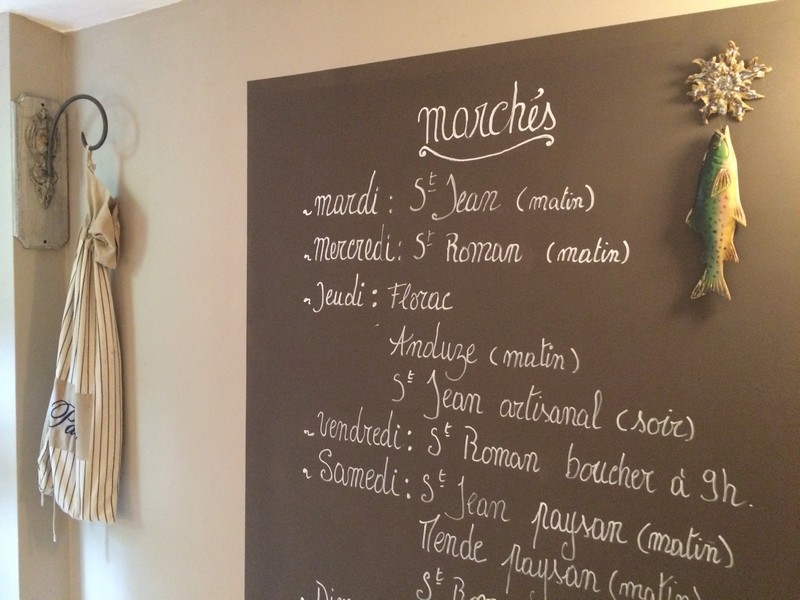 marchés
~ mardi : St Jean (matin)
~ Mercredi : St Roman (matin)
~ Jeudi : Florac
Anduze (matin)
St Jean artisanal (soir)
~ vendredi : St Roman boucher à 9h.
~ Samedi : St Jean paysan (matin)
Mende paysan (matin)
St
Pa